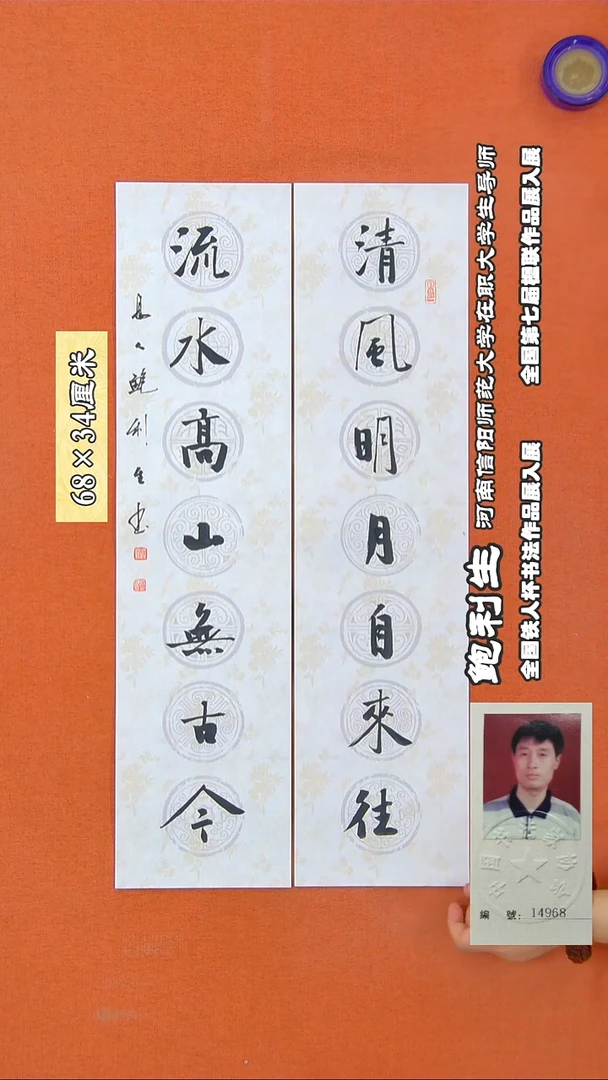 清風明月自來往
流水高山無古今
鲍利生
河南信阳师范大学在职大学生导师
全国铁人杯书法作品展入展
全国第七届楹联作品展入展
68×34厘米
編 號: 14968